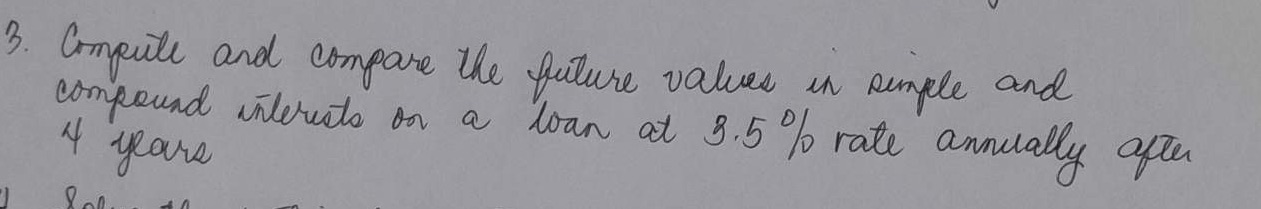 3. Compute and compare the future values in simple and
compound interests on a loan at 3.5% rate annually after
4 years